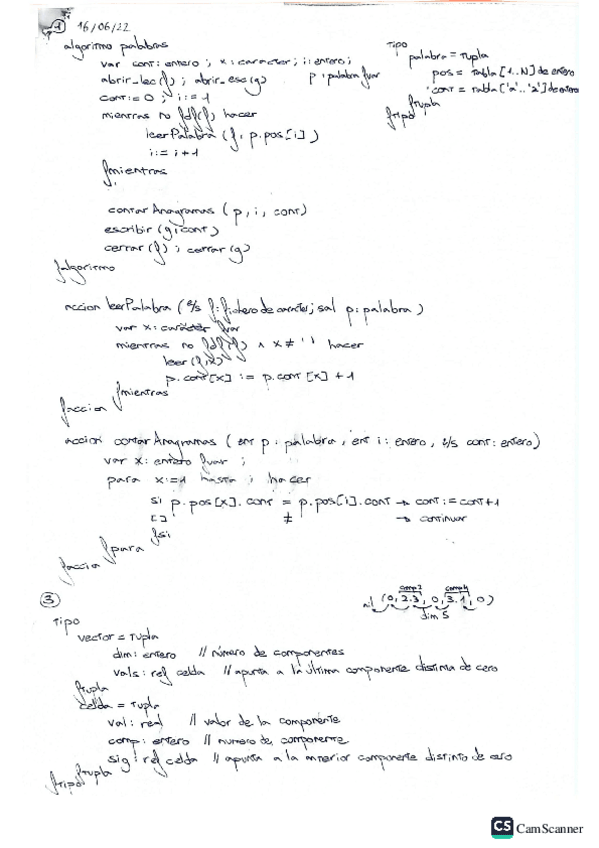 1 16/06/22
algoritmo palabras
var cont: entero ; x: caracter ; i: entero ;
abrir_lec(f) ; abrir_esc(g) p: palabra fvar
cont:= 0 ; i:= 1
mientras no fdf(f) hacer
leerPalabra (f, p.pos[i])
i:= i+1
fmientras
contarAnagramas (p, i, cont)
escribir (g, cont)
cerrar (f) ; cerrar (g)
falgoritmo
Tipo
palabra = Tupla
pos = tabla [1..N] de entero
cont = tabla ['a'..'z'] de entero
ftupla
ftipo
accion leerPalabra (e/s f: fichero de carácter; sal p: palabra)
var x: carácter fvar
mientras no fdf(f) ∧ x ≠ ' ' hacer
leer (f, x)
p.cont[x] := p.cont [x] + 1
fmientras
faccion
accion contarAnagramas (ent p: palabra, ent i: entero, e/s cont: entero)
var x: entero fvar ;
para x:=1 hasta i hacer
si p.pos[x].cont = p.pos[i].cont → cont := cont+1
[] ≠ → continuar
fsi
fpara
faccion
3
comp2 comp4
(0, 2.3, 0, 3.1, 0)
nil dim 5
Tipo
vector = Tupla
dim: entero // número de componentes
vals: ref celda // apunta a la última componente distinta de cero
ftupla
celda = Tupla
val: real // valor de la componente
comp: entero // numero de componente
sig: ref celda // apunta a la anterior componente distinto de cero
ftupla
ftipo
CS CamScanner